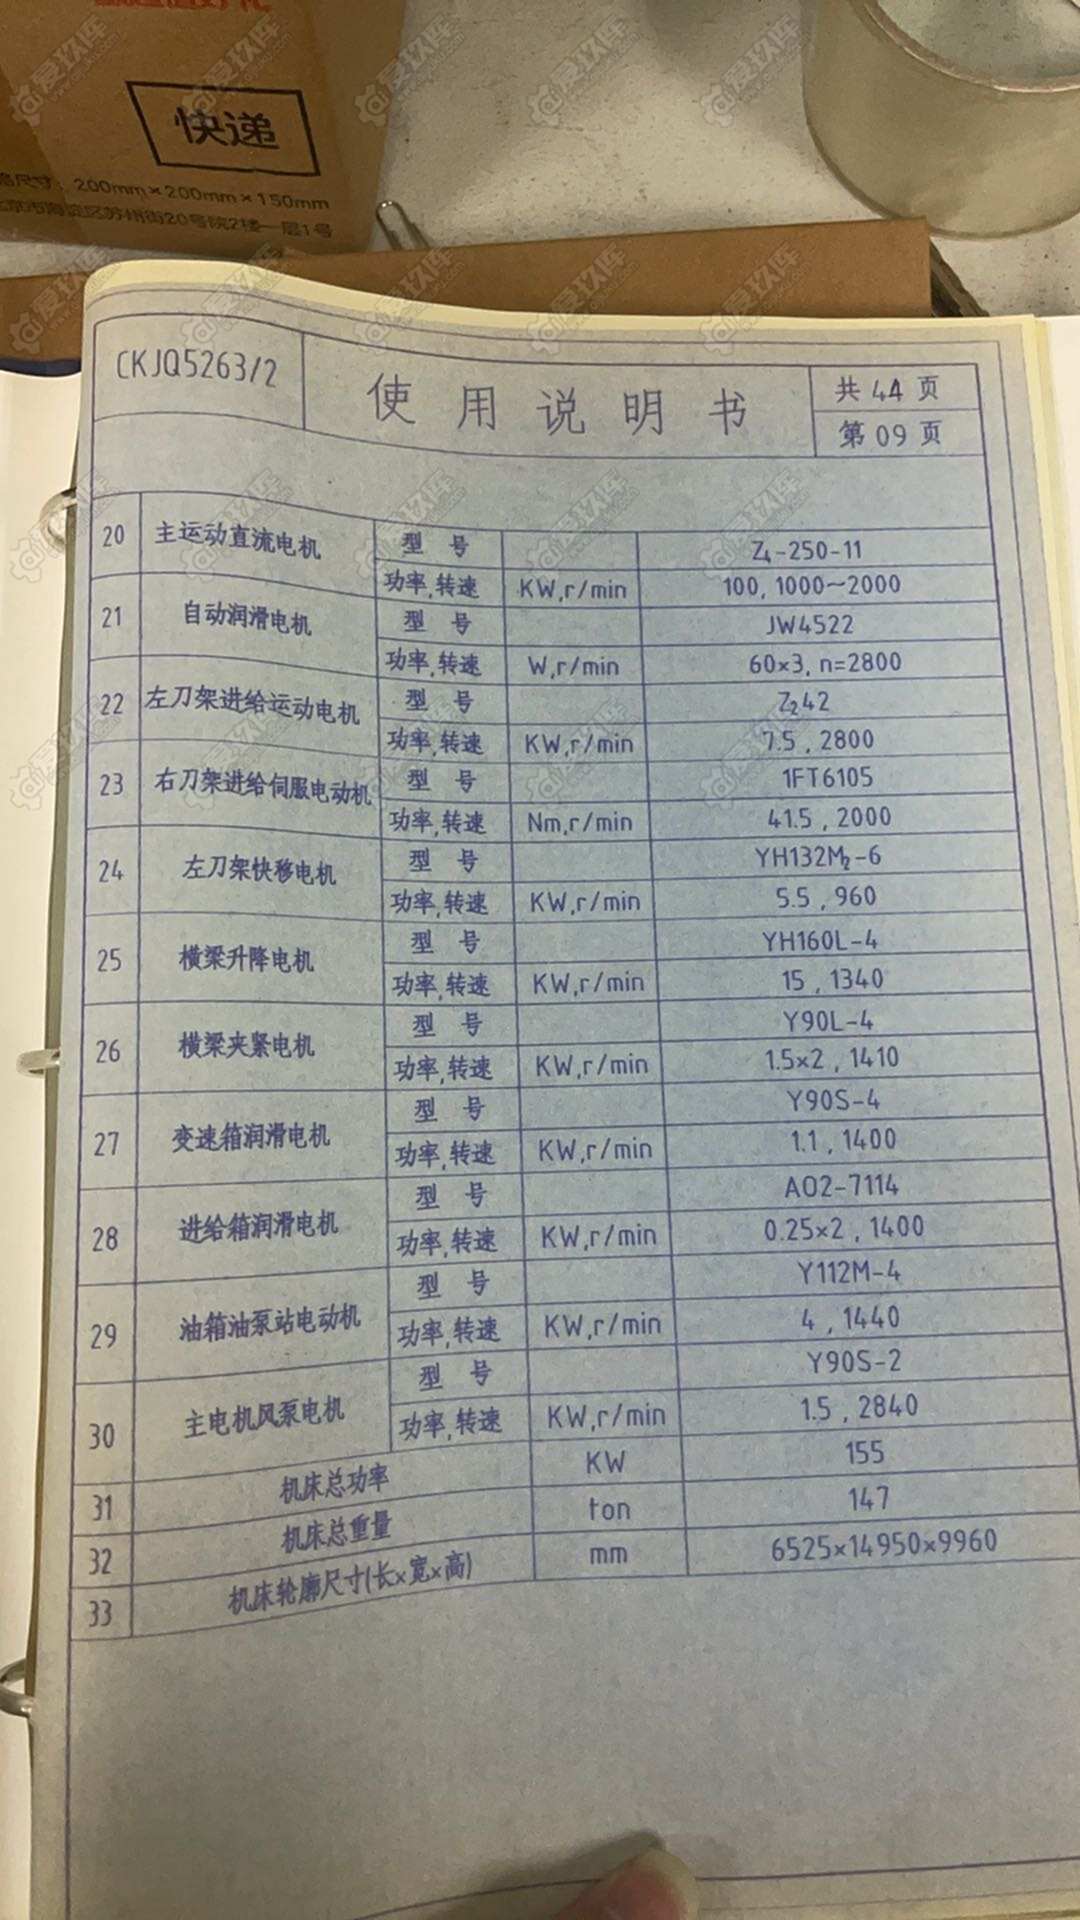 快递
200mm×200mm×150mm
区苏州街20号院2楼一层1号
CKJQ5263/2
使用说明书
共 44 页
第 09 页
20 主运动直流电机 型号 Z4-250-11
功率,转速 KW,r/min 100, 1000~2000
21 自动润滑电机 型号 JW4522
功率,转速 W,r/min 60×3, n=2800
22 左刀架进给运动电机 型号 Z₂42
功率,转速 KW,r/min 7.5, 2800
23 右刀架进给伺服电动机 型号 1FT6105
功率,转速 Nm,r/min 41.5, 2000
24 左刀架快移电机 型号 YH132M₂-6
功率,转速 KW,r/min 5.5, 960
25 横梁升降电机 型号 YH160L-4
功率,转速 KW,r/min 15, 1340
26 横梁夹紧电机 型号 Y90L-4
功率,转速 KW,r/min 1.5×2, 1410
27 变速箱润滑电机 型号 Y90S-4
功率,转速 KW,r/min 1.1, 1400
28 进给箱润滑电机 型号 AO2-7114
功率,转速 KW,r/min 0.25×2, 1400
29 油箱油泵站电动机 型号 Y112M-4
功率,转速 KW,r/min 4, 1440
30 主电机风泵电机 型号 Y90S-2
功率,转速 KW,r/min 1.5, 2840
31 机床总功率 KW 155
32 机床总重量 ton 147
33 机床轮廓尺寸(长×宽×高) mm 6525×14950×9960